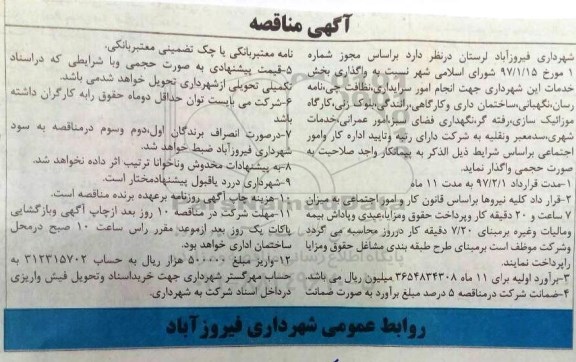 آگهی مناقصه
شهرداری فیروزآباد لرستان درنظر دارد براساس مجوز شماره
۱ مورخ ۹۷/۱/۱۵ شورای اسلامی شهر نسبت به واگذاری بخش
خدمات این شهرداری جهت انجام امور سرایداری،نظافت چی،نامه
رسان،نگهبانی،ساختمان داری وکارگاهی،رانندگی،بلوک زنی،کارگاه
موزائیک سازی،رفته گر،نگهداری فضای سبز،امور عمرانی،خدمات
شهری،سدمعبر ونقلیه به شرکت دارای رتبه وتایید اداره کار وامور
اجتماعی براساس شرایط ذیل الذکر به پیمانکار واجد صلاحیت به
صورت حجمی واگذار نماید.
۱-مدت قرارداد ۹۷/۲/۱ به مدت ۱۱ ماه
۲-قرار داد کلیه نیروها براساس قانون کار و امور اجتماعی به میزان
۷ ساعت و ۲۰ دقیقه کار وپرداخت حقوق ومزایا،عیدی وپاداش بیمه
ومالیات وغیره برمبنای ۷/۲۰ دقیقه کار درروز محاسبه می گردد
وشرکت موظف است برمبنای طرح طبقه بندی مشاغل حقوق ومزایا
راپرداخت نمایند.
۳-برآورد اولیه برای ۱۱ ماه ۳۶۵۴۸۳۴۳۰۸ میلیون ریال می باشد.
۴-ضمانت شرکت درمناقصه ۵ درصد مبلغ برآورد به صورت ضمانت
نامه معتبربانکی یا چک تضمینی معتبربانکی.
۵-قیمت پیشنهادی به صورت حجمی وبا شرایطی که دراسناد
تکمیلی تحویلی ازشهرداری تحویل خواهد شدمی باشد.
۶-شرکت می بایست توان حداقل دوماه حقوق رابه کارگران داشته
باشد
۷-درصورت انصراف برندگان اول،دوم وسوم درمناقصه به سود
شهرداری فیروزآباد ضبط خواهد شد.
۸-به پیشنهادات مخدوش وناخوانا ترتیب اثر داده نخواهد شد.
۹-شهرداری دررد یاقبول پیشنهادمختار است.
۱۰-هزینه چاپ آگهی روزنامه برعهده برنده مناقصه است.
۱۱-مهلت شرکت در مناقصه ۱۰ روز بعد ازچاپ آگهی وبازگشایی
پاکات یک روز بعد ازموعد مقرر راس ساعت ۱۰ صبح درمحل
ساختمان اداری خواهد بود.
۱۲-واریز مبلغ ۵۰۰.۰۰۰ هزار ریال به حساب ۳۱۲۳۱۵۷۰۲ به
حساب مهرگستر شهرداری جهت خریداسناد وتحویل فیش واریزی
درداخل اسناد شرکت به شهرداری.
روابط عمومی شهرداری فیروزآباد